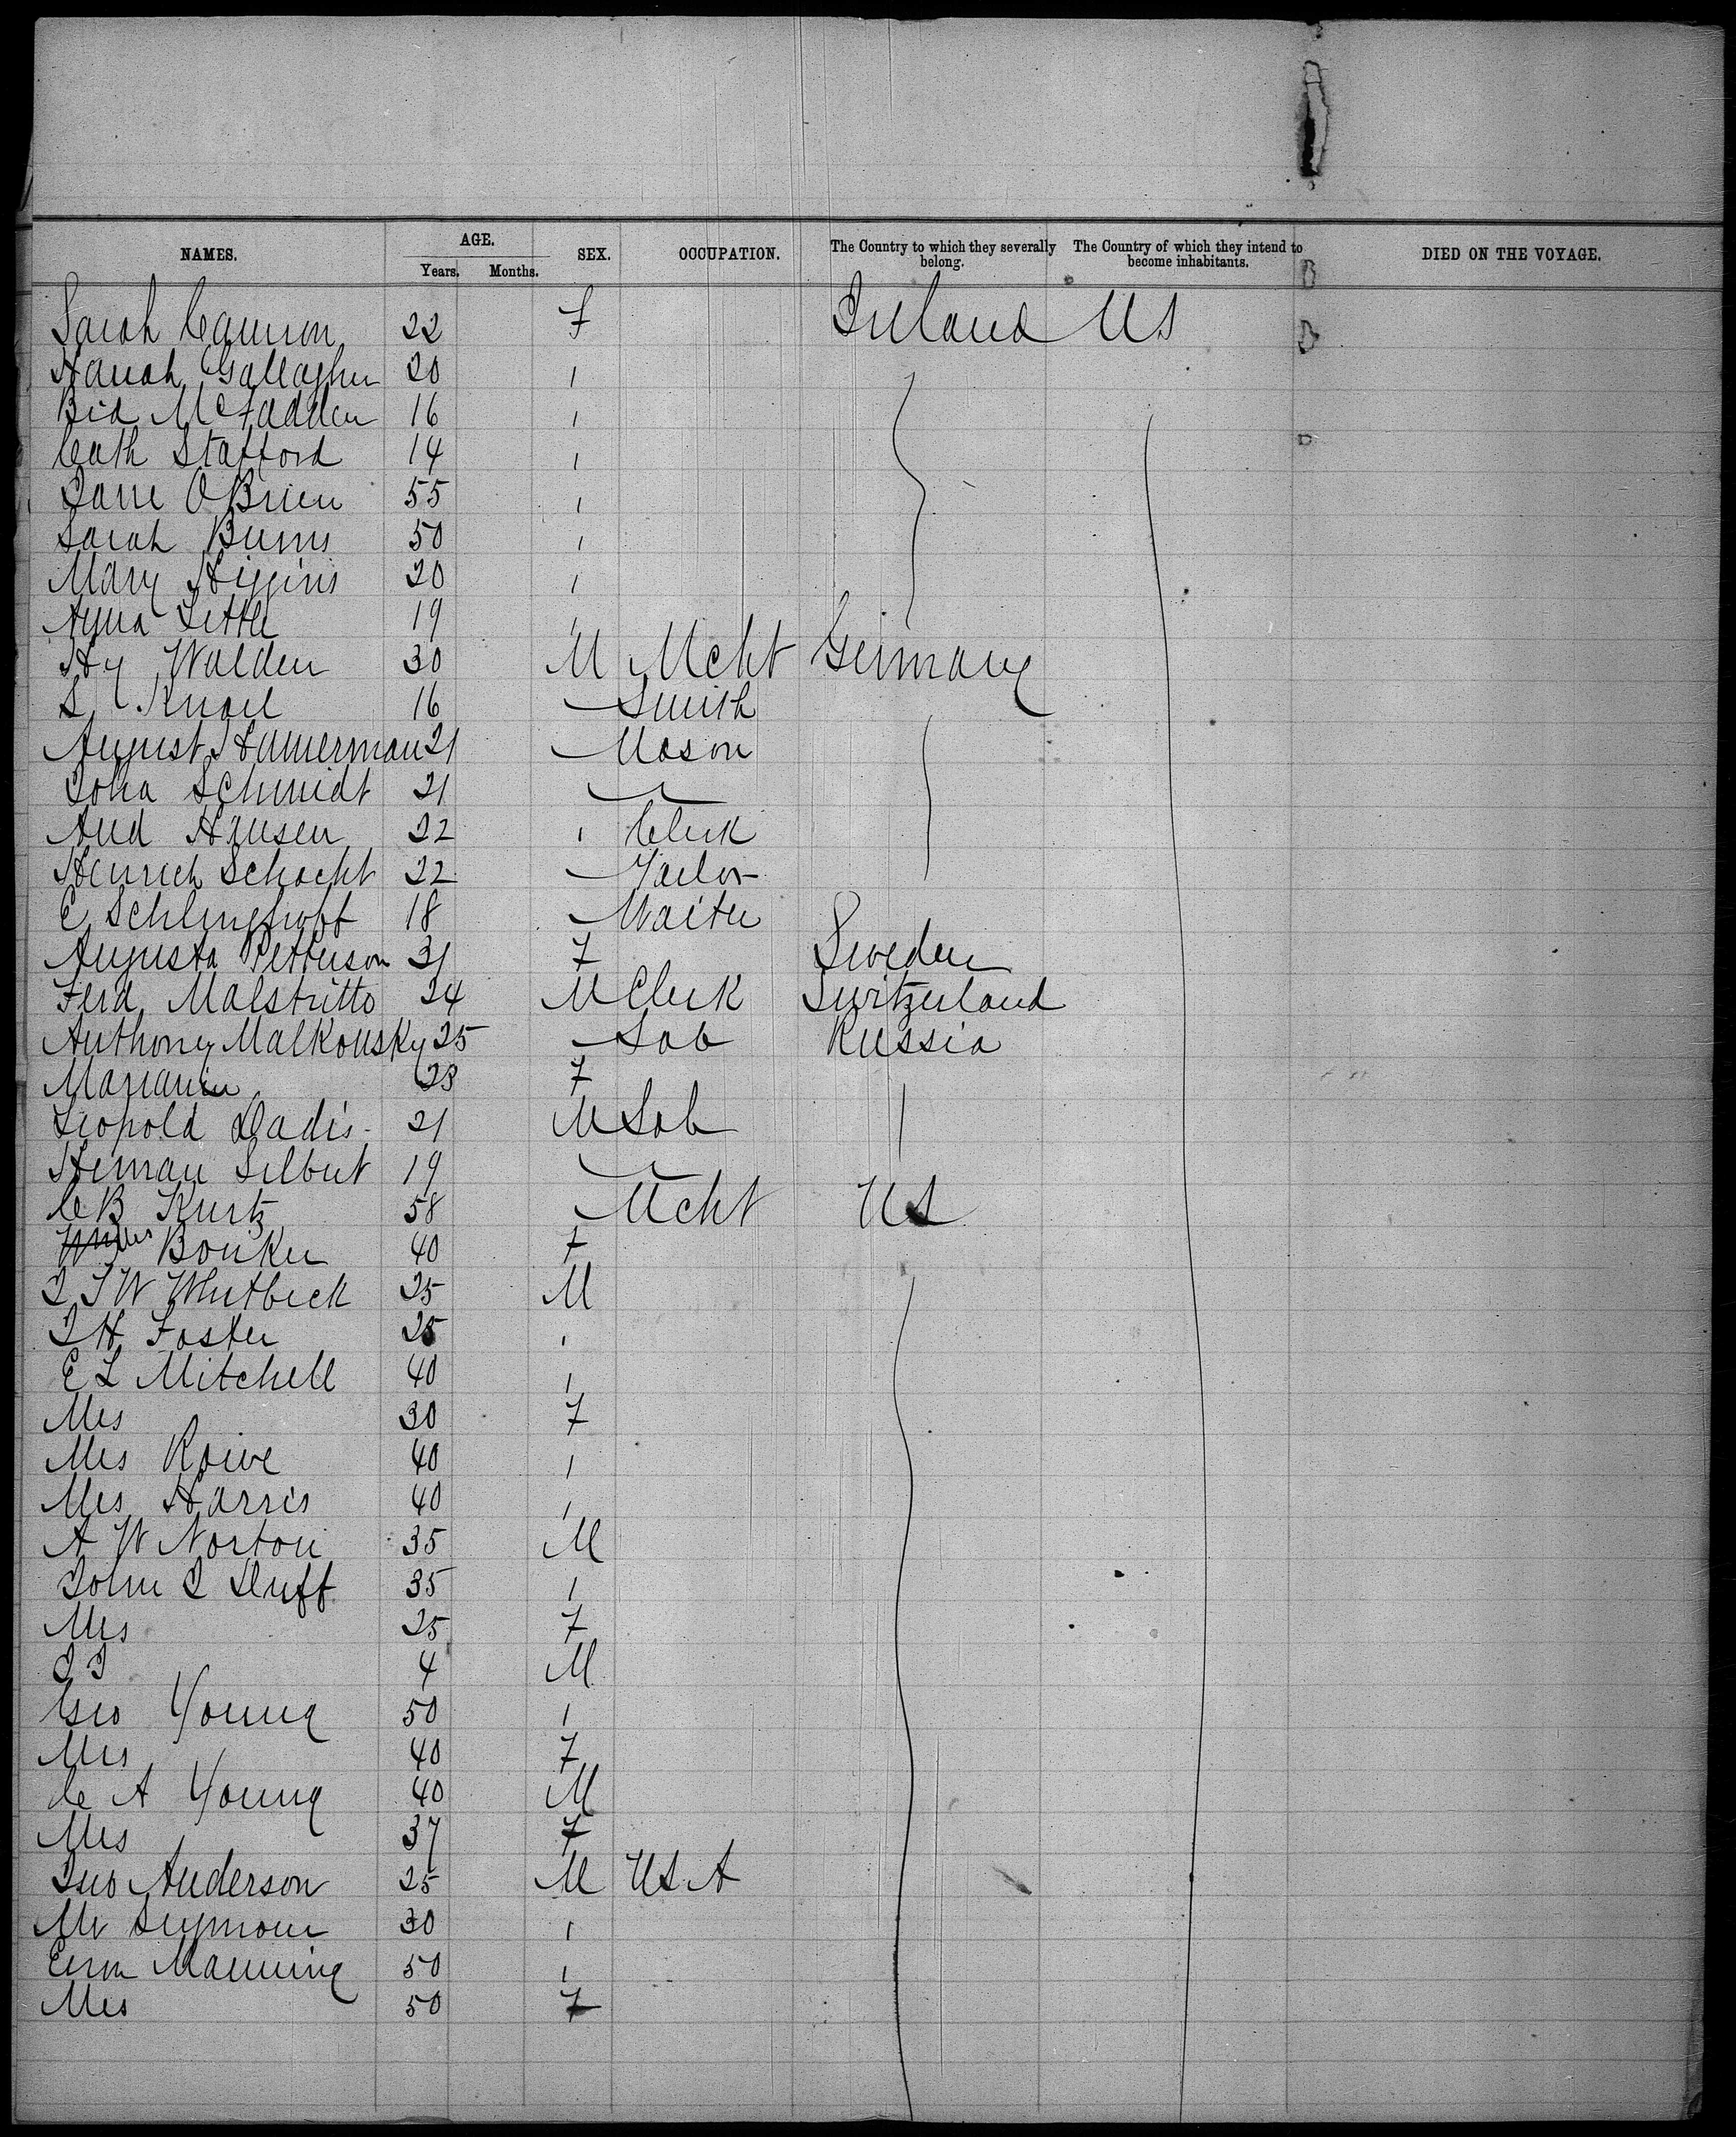 NAMES. AGE. Years. Months. SEX. OCCUPATION. The Country to which they severally belong. The Country of which they intend to become inhabitants. DIED ON THE VOYAGE.
Sarah Cannon 22 F Ireland US
Hanah Gallagher 20 "
Bid McFadden 16 "
Cath Stafford 14 "
Jane OBrien 55 "
Sarah Burns 50 "
Mary Higgins 20 "
Anna Little 19 "
Hy Walden 30 M Mcht Germany
S Knoll 16 Smith
August Hamerman 21 Mason
Joha Schmidt 21
And Hansen 22 " Clerk
Henrich Schacht 22 Tailor
C 18 Waiter
Augusta Petterson 31 F Sweden
Ferd Malstritto 24 M Clerk Switzerland
Anthony Malkousky 25 Lab Russia
23 F
Leopold Dadis 21 M Lab
Herman Silbert 19
C B Kurtz 58 Mcht US
Bonker 40 F
J T W Whitbeck 25 M
J H Foster 25 "
E L Mitchell 40 "
Mrs 30 F
Mrs Rowe 40 "
Mrs Harris 40 "
A W Norton 35 M
John J Duff 35 "
Mrs 25 F
J J 4 M
Geo Young 50 "
Mrs 40 F
C A Young 40 M
Mrs 37 F
Jno Anderson 25 M US A
Mr Seymour 30 "
Manning 50 "
Mrs 50 F